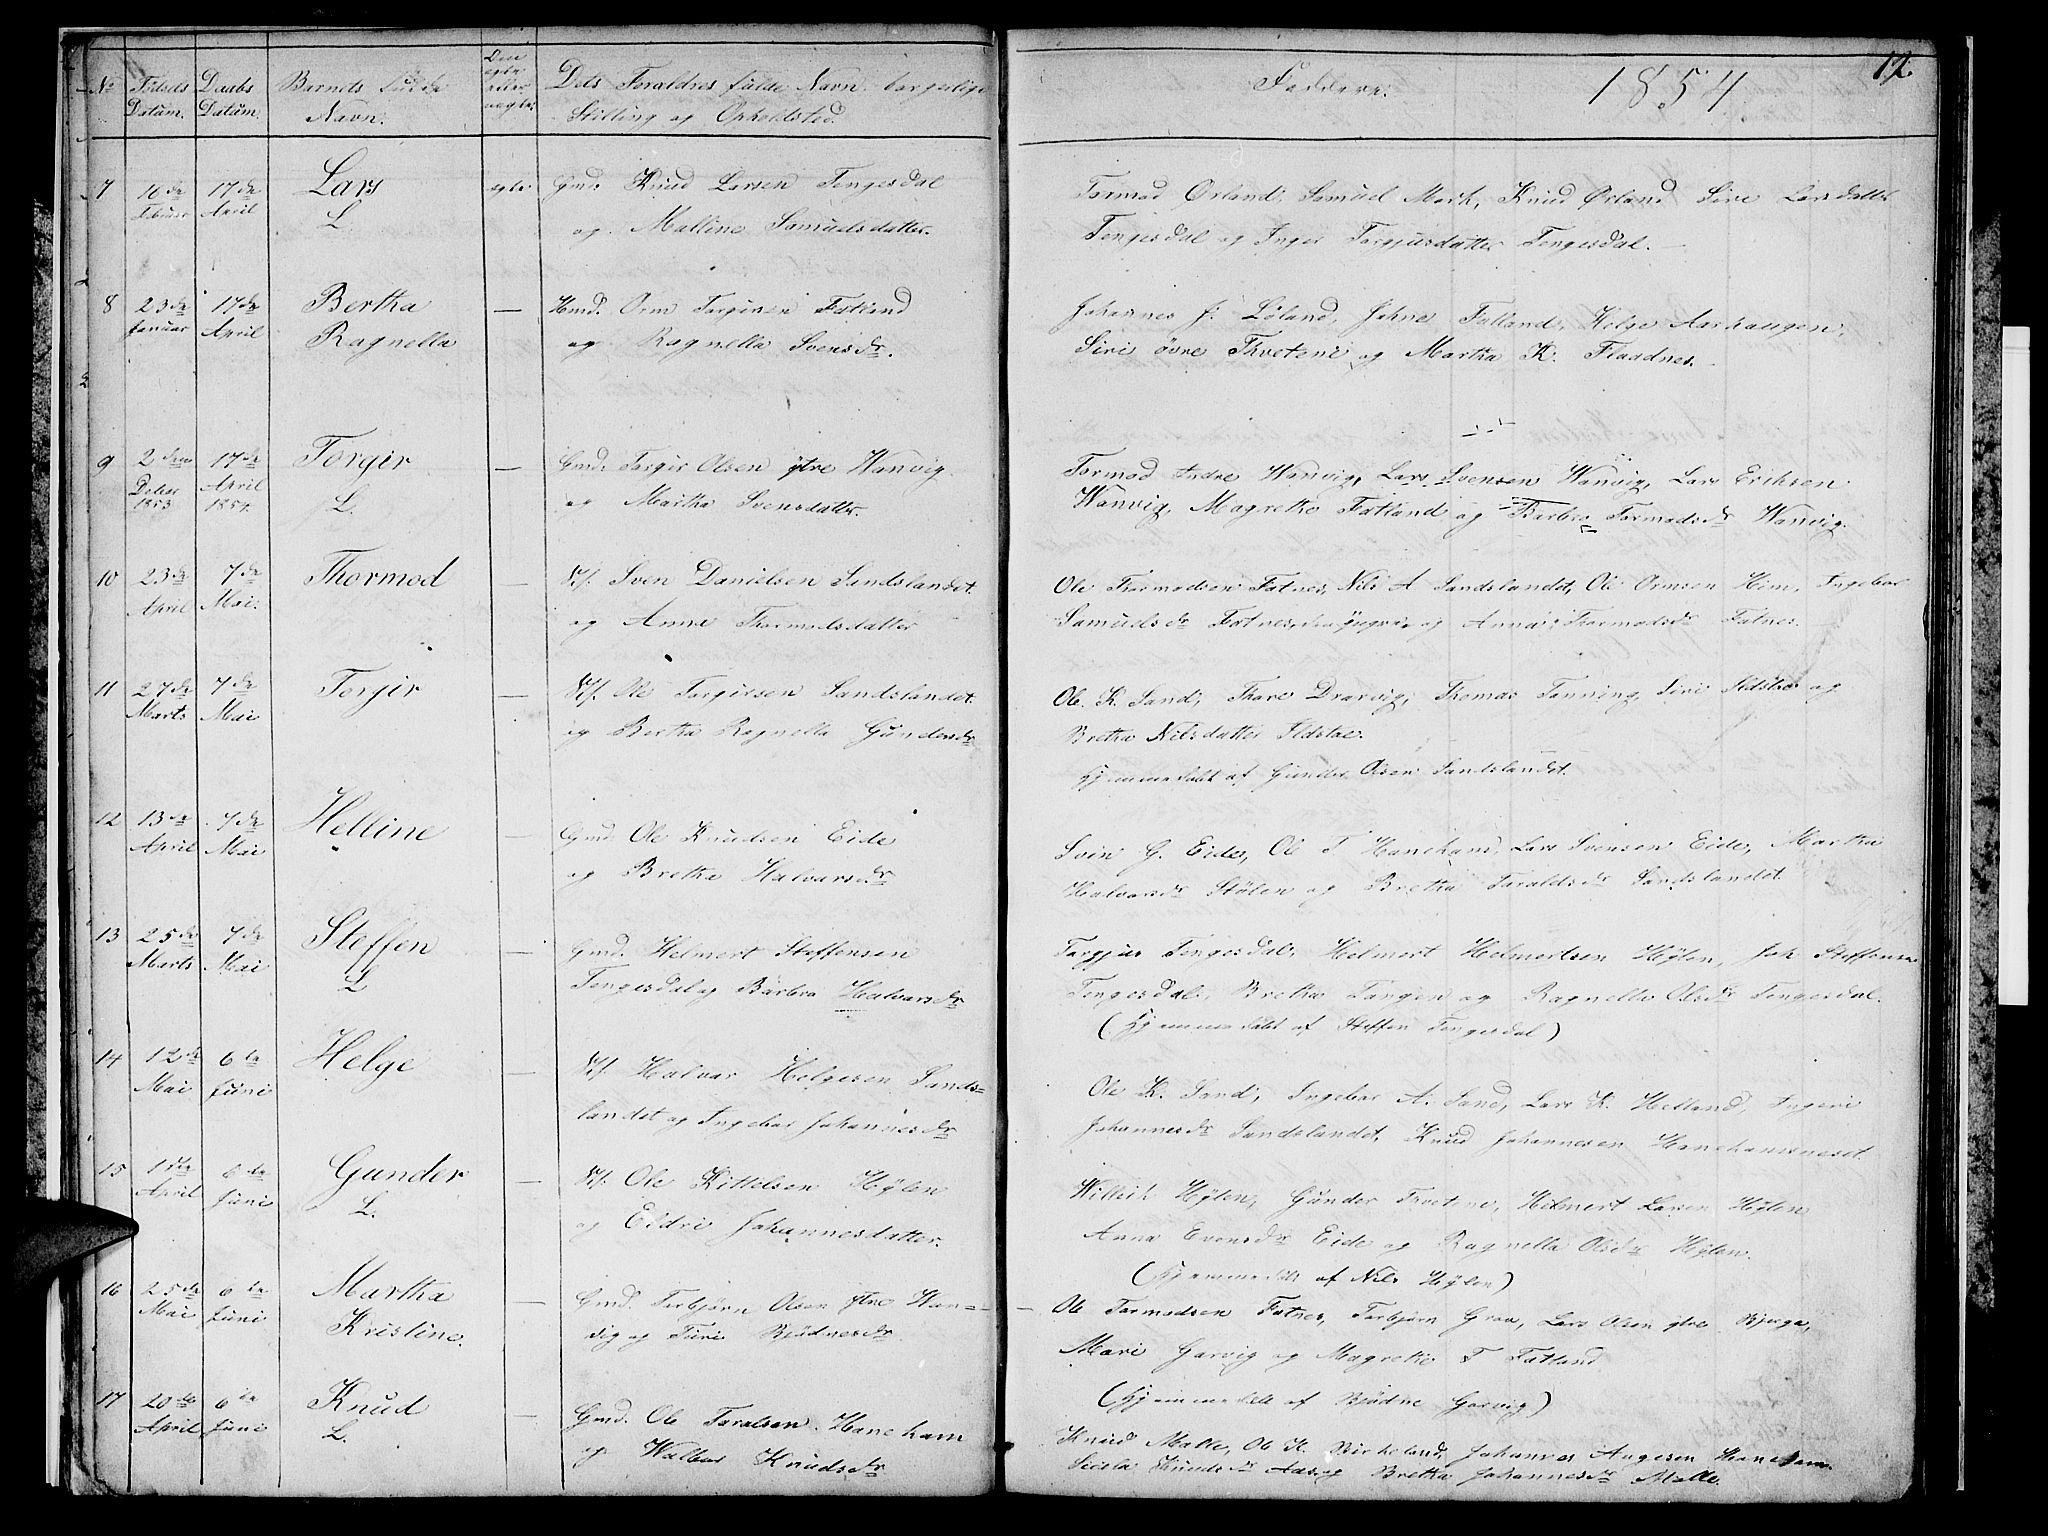 No Fødsels Datum. Daabs Datum. Barnets fulde Navn. Om egte eller uegte. Dets Forældres fulde Navn borgerlige
Stilling og Opholdsted.
Faddere. 1854 12.
7 16de Februar 17de April Lars egte Gmd. Knud Larsen Tengesdal
L. og Malline Samuelsdatter.
Tormod Ørland, Samuel Mork, Knud Ørland Sire Larsdatter
Tengesdal og Inger Torgjusdatter Tengesdal.
8 23de Januar 17de April Bertha — Hmd. Orm Torgirsen Fatland
Ragnella og Ragnella Svensdr.
Johannes J. Løland, Johne Fatland, Helge Aarhaugen,
Siri øvre Thvetene og Martha K. Flaadnes.
9 2den Debr 1853 17de April 1854. Torgir — Gmd. Torgir Olsen ytre Wanvig
L. og Martha Svensdatter.
Tormod Indre Wanvig, Lars Svensen Wanvig, Lars Eriksen
Wanvig, Magrethe Fatland og Barbro Tormodsdr Wanvig.
10 23de April 7de Mai. Thormod — Sven Danielsen Sandslandet
og Anna Thormodsdatter
Ole Tormodsen Fatnes, Nils A Sandslandet, Ole Ormsen Him, Ingebor
Samuelsdr Fatnes, og Anna Thormodsdr Fatnes.
11 27de Marts 7de Mai Torgir — Ole Torgirsen Sandslandet
og Bertha Ragnella Gundersdr
Ole K. Sand, Thore Drarvig, Thomas Tonning, Siri Ildstoe og
Bretha Nilsdatter Ildstoe.
Hjemmedøbt af Gunder Olsen Sandslandet.
12 13de April 7de Mai Helline — Gmd. Ole Knudsen Eide
og Bretha Halvarsdr
Svein G. Eide, Ole T Hanekam, Lars Svensen Eide, Martha
Halvarsdr Stølen og Bretha Taraldsdr Sandslandet.
13 25de Marts 7de Mai Steffen — Gmd. Helmert Steffensen
L Tengesdal og Barbro Halvarsdr
Torgjus Tengesdal, Helmert Helmertsen Hylen, Joh Steffensen
Tengesdal, Bretha Tangen og Ragnella Olsdr Tengesdal.
(Hjemmedøbt af Steffen Tengesdal)
14 12de Mai 6te Juni Helge — Halvar Helgesen Sands=
landet og Ingebor Johannesdr
Ole K. Sand, Ingebor A. Sand, Lars K. Helland, Ingeri
Johannesdr Sandslandet, Knud Johannesen Hanekamsneset.
15 1ste April 6te Juni Gunder — Ole Kittelsen Hylen
L. og Eldri Johannesdatter.
Willeik Hylen, Gunder Tvetene, Helmert Larsen Hylen
Anna Evensdr Eide og Ragnella Olsdr Hylen.
(Hjemmedøbt af Nils Hylen)
16 25de Mai 6te Juni Martha — Gmd. Torbjørn Olsen ytre Wan=
Kristine. vig og Turi Bjødnesdr.
— Ole Tormodsen Fatnes, Torbjørn Grov, Lars Olsen ytre Bjerga,
Mari Garvig og Magrethe T Fatland
(Hjemmedøbt af Bjødne Garvig)
17 20de April 6te Juni Knud — Gmd. Ole Toralsen Hanekam
L. og Walbor Knudsdr
Knud Malle, Ole K. Birkeland, Johannes Aagesen Hanekam
Sisela Knudsdr Aas og Bretha Johannesdr Malle.